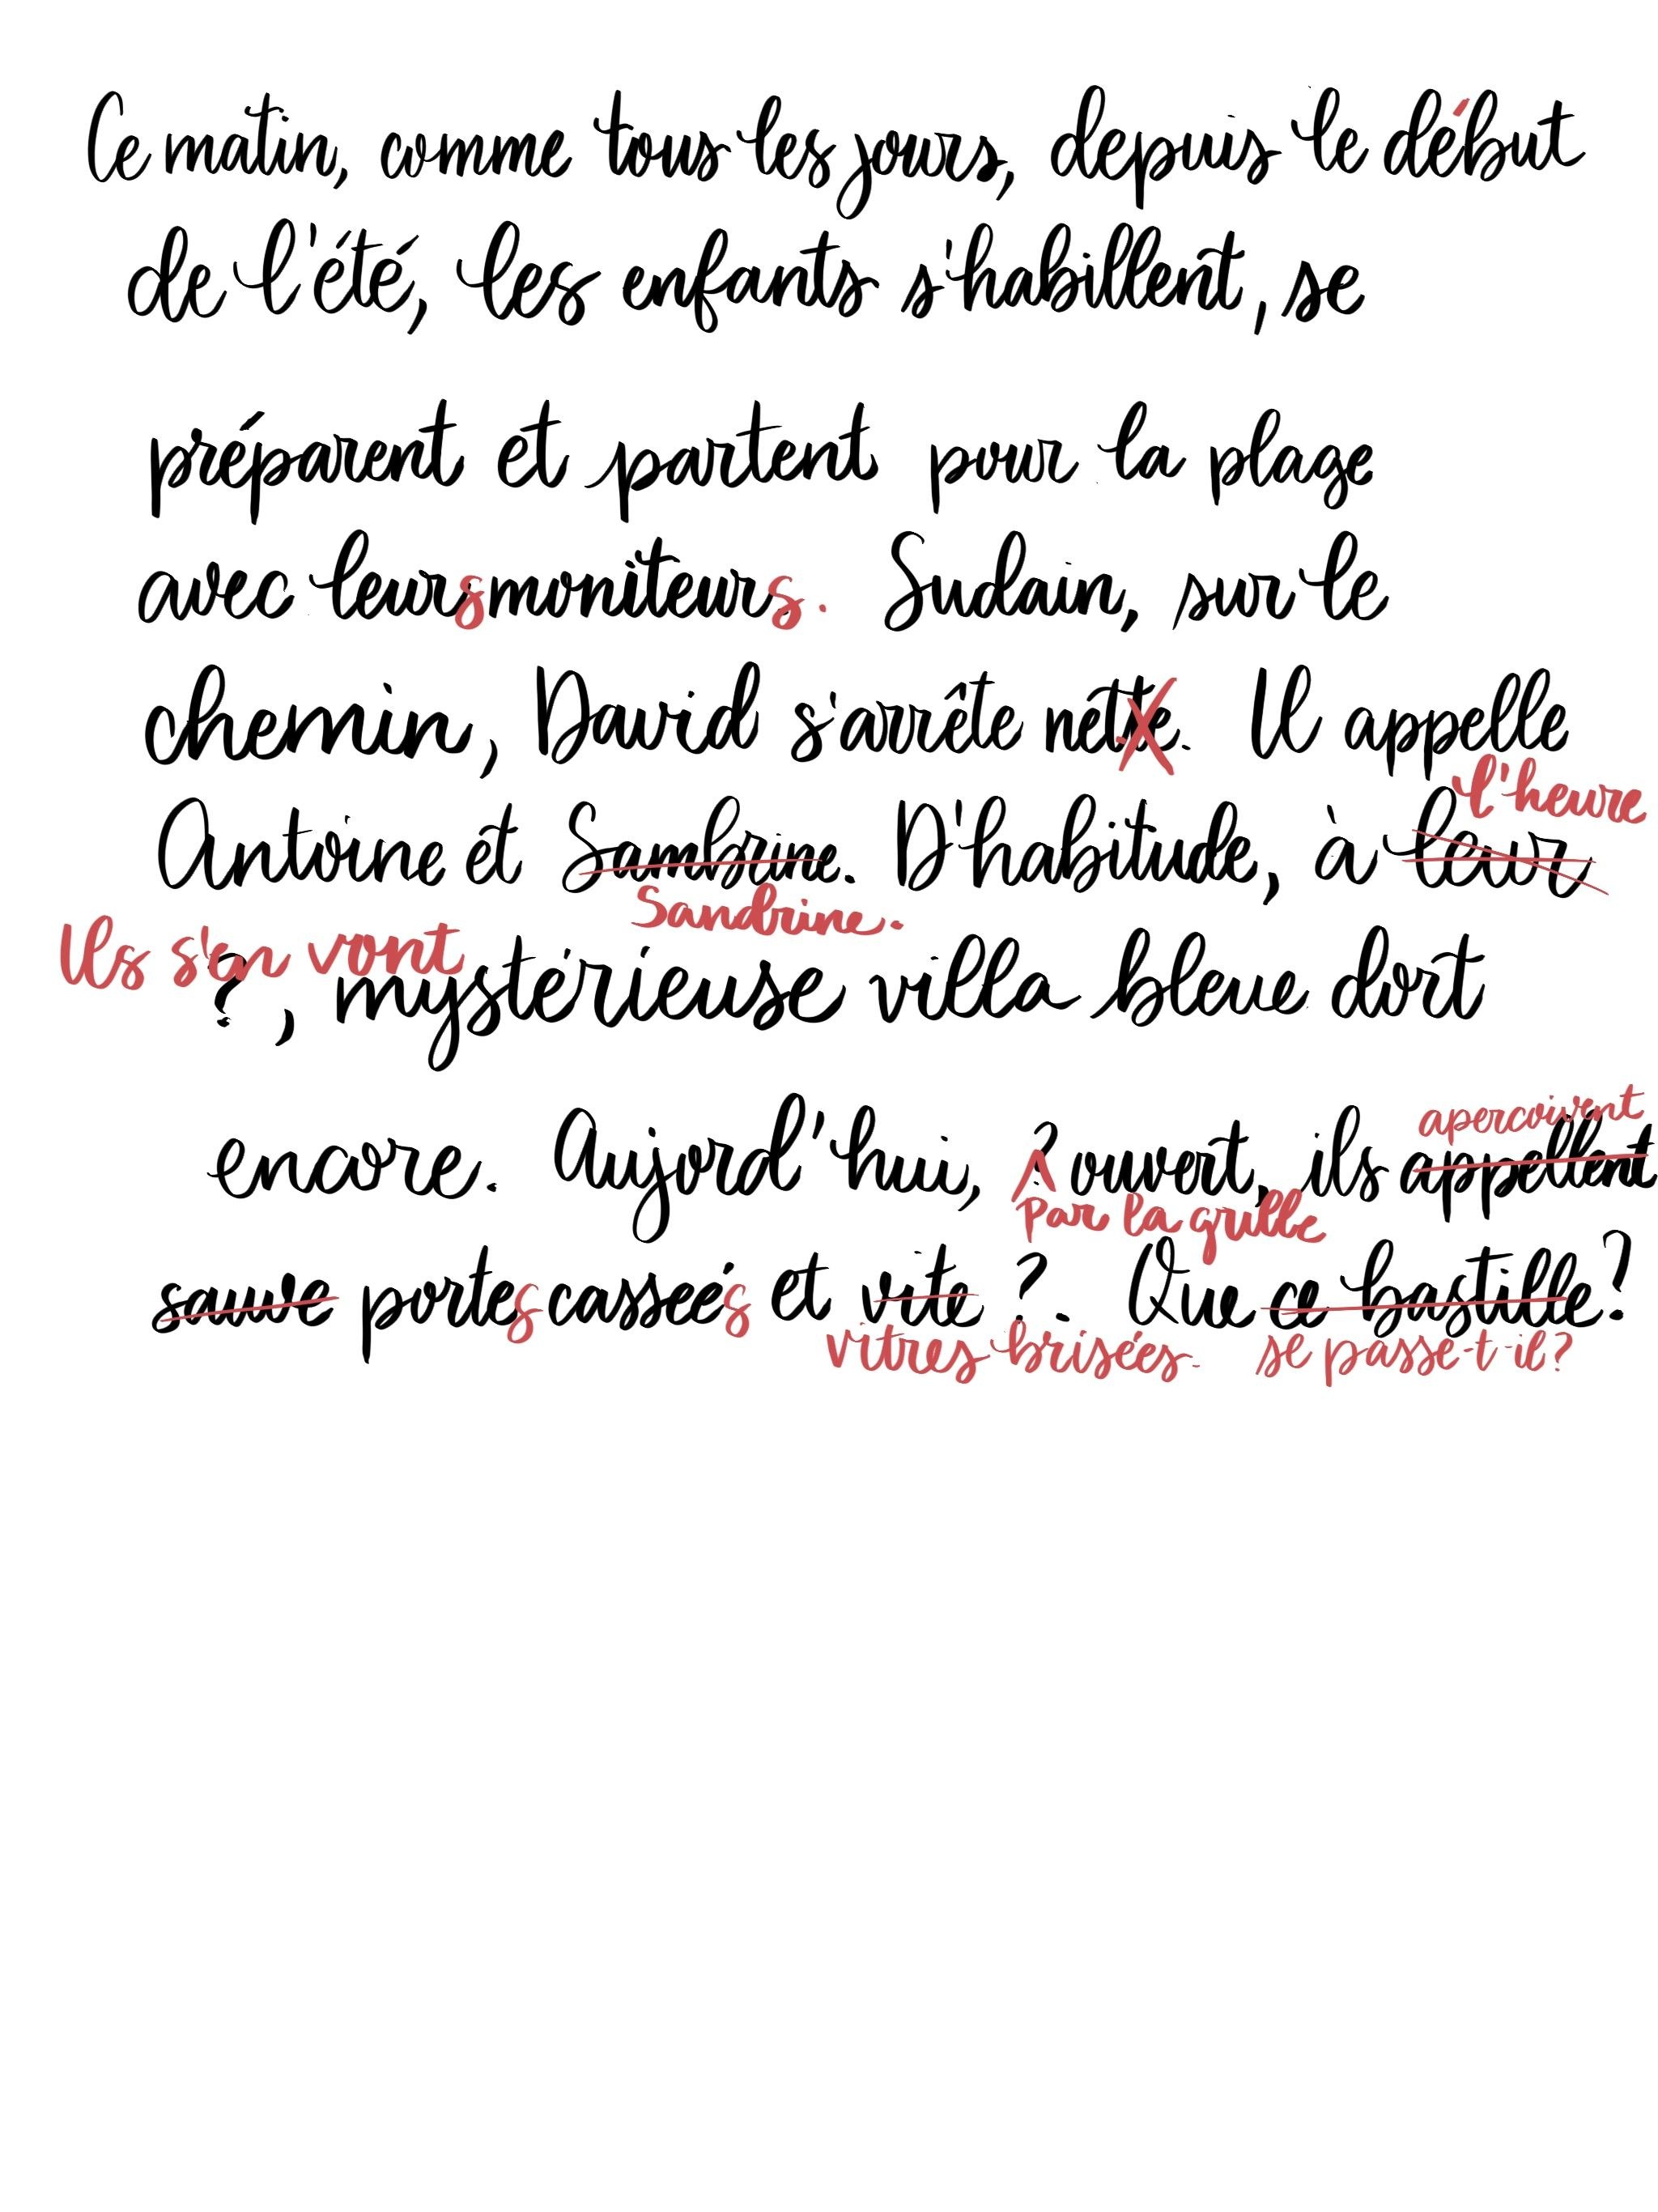 Ce matin, comme tous les jours, depuis le début
de l'été, les enfants s'habillent, se
préparent et partent pour la plage
avec leurs moniteurs. Sudain, sur le
chemin, David s'arrête nette. Il appelle
l'heure
Antoine et Sambrine. D'habitude, à leur
Sandrine.
Ils s'en vont
?, mystérieuse villa bleue dort
apercoivent
encore. Aujord'hui, ? ouvert, ils appellent
Par la grille
sauve portes cassées et vite ?. Que ce bastille?
vitres brisées. se passe-t-il?